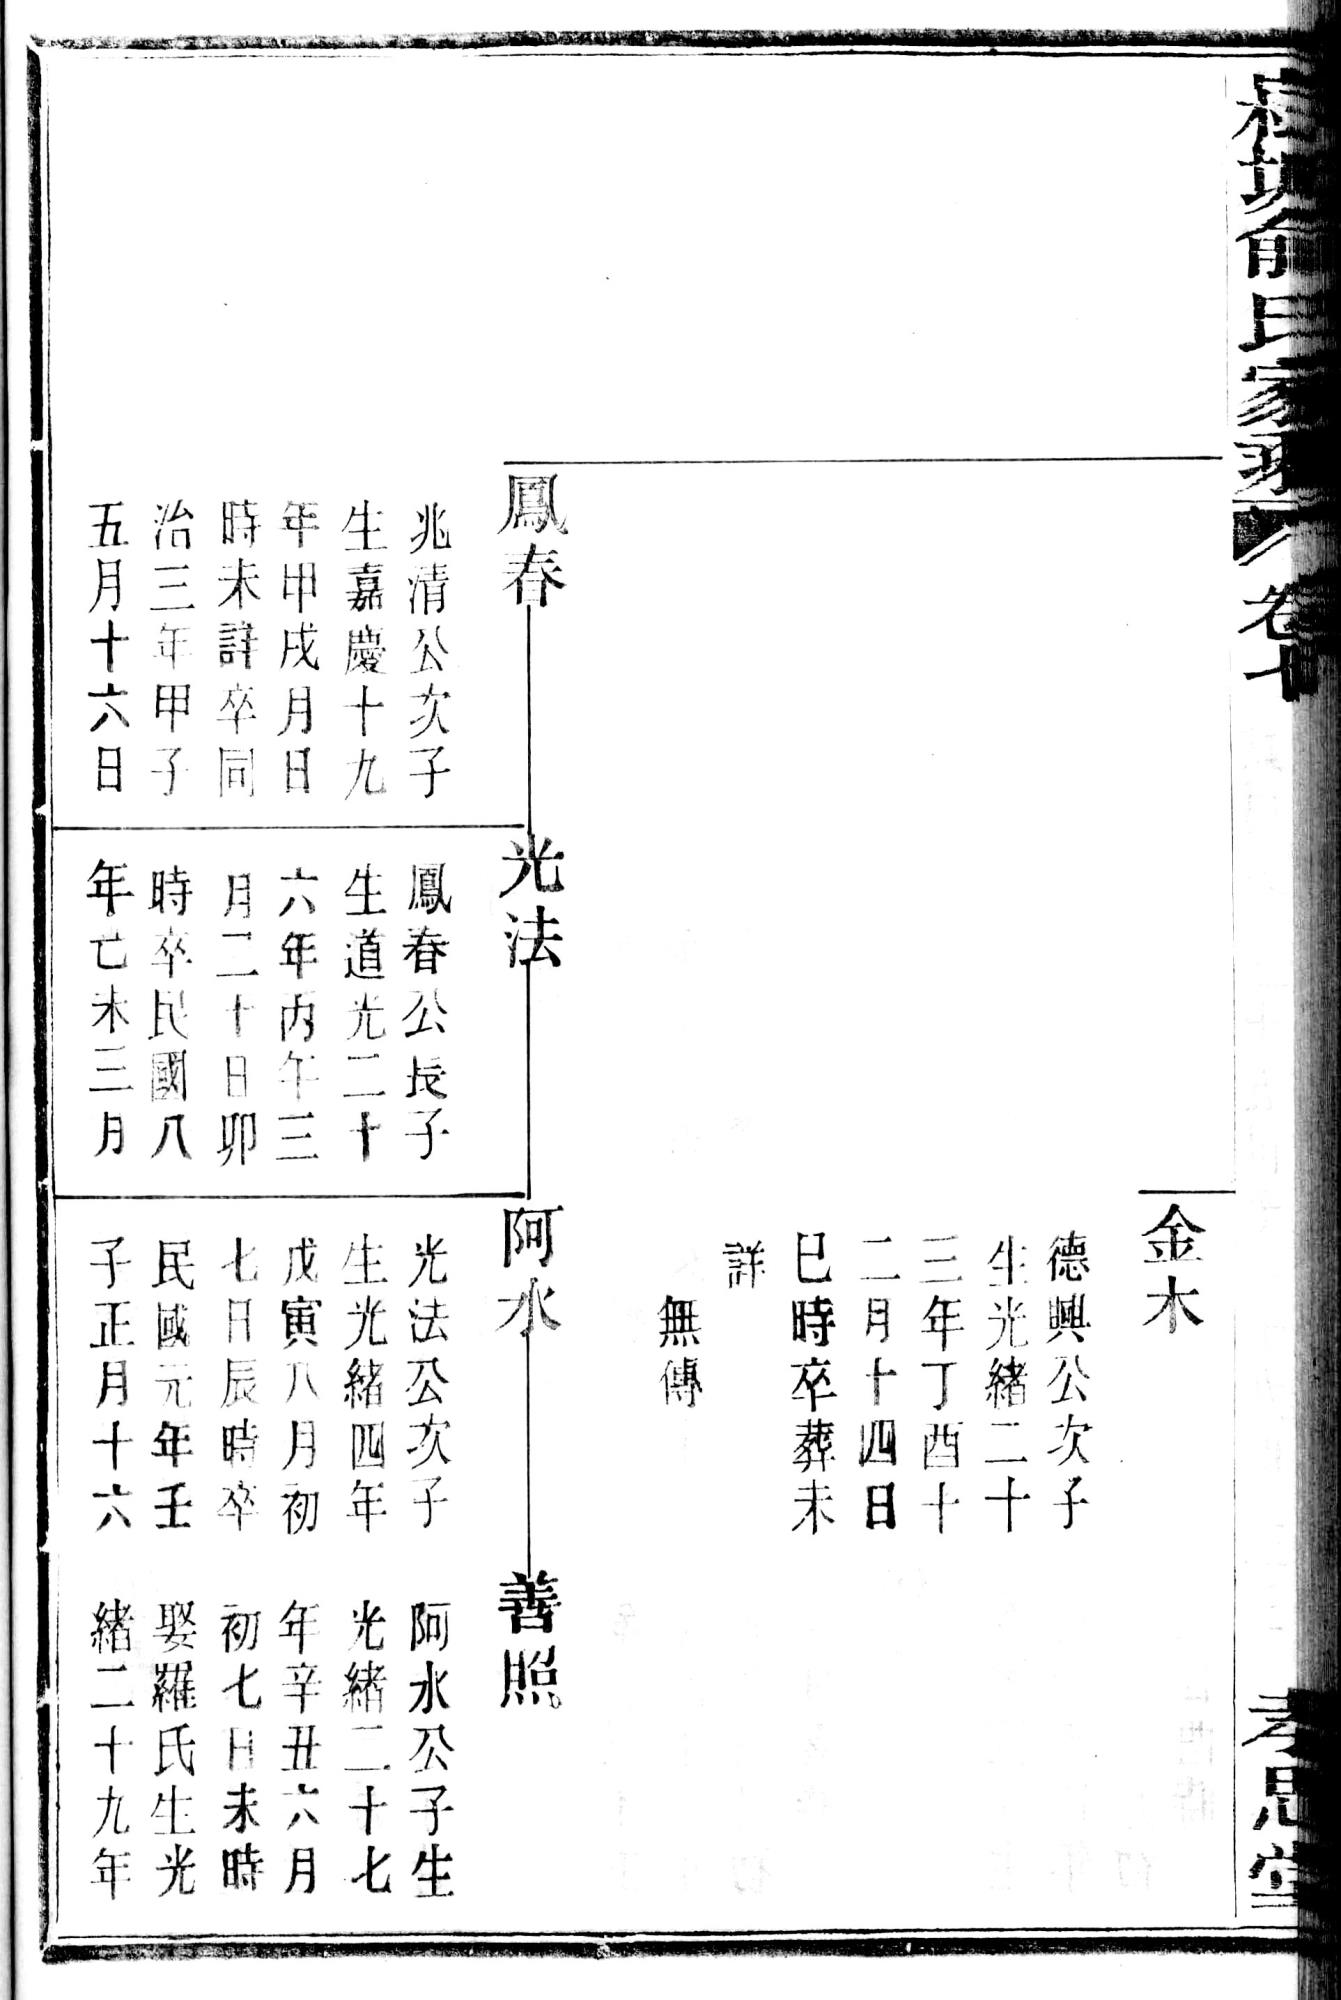 俞氏家
卷
孝思堂
金木
德興公次子
生光緒二十
三年丁酉十
二月十四日
巳時卒葬未
詳
無傳
鳳春
兆清公次子
生嘉慶十九
年甲戌月日
時未詳卒同
治三年甲子
五月十六日
光法
鳳春公長子
生道光二十
六年丙午三
月二十日卯
時卒民國八
年亡未三月
阿水
光法公次子
生光緒四年
戊寅八月初
七日辰時卒
民國元年壬
子正月十六
善照
阿水公子生
光緒二十七
年辛丑六月
初七日未時
娶羅氏生光
緒二十九年